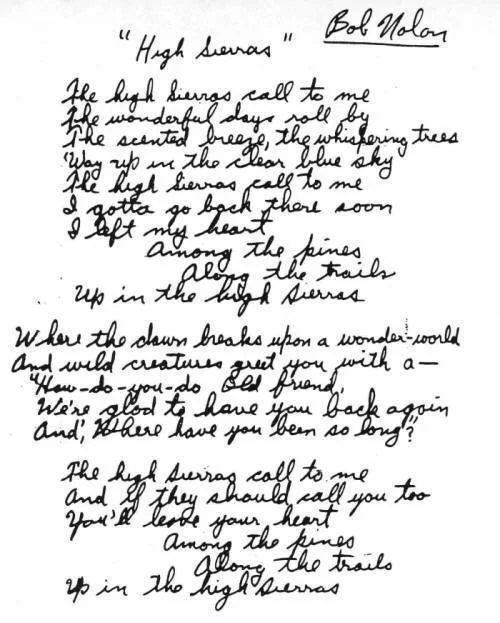 Bob Nolan
"High Sierras"
The high Sierras call to me
The wonderful days roll by
The scented breeze, the whispering trees
'Way up in the clear blue sky
The high Sierras call to me
I gotta go back there soon
I left my heart
Among the pines
Along the trails
Up in the high Sierras
Where the dawn breaks upon a wonder-world
And wild creatures greet you with a—
"How-do-you-do Old friend,
We're glad to have you back again
And, Where have you been so long"?
The high Sierras call to me
And if they should call you too
You'll leave your heart
Among the pines
Along the trails
Up in the high Sierras